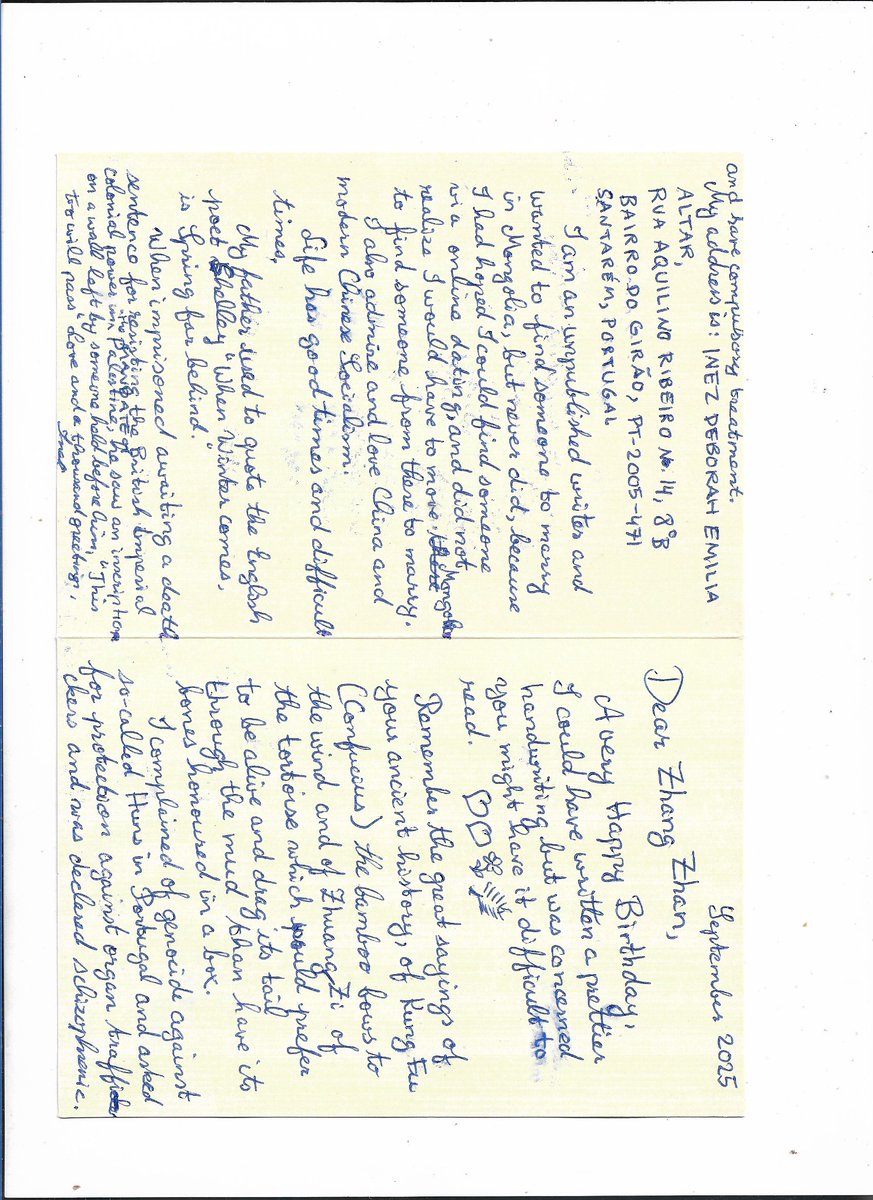 September 2025
Dear Zhang Zhan,
A very Happy Birthday,
I could have written a prettier
handwriting but was concerned
you might have it difficult to
read.
Remember the great sayings of
your ancient history, of Kung Fu
(Confucius) the bamboo bows to
the wind and of Zhuang Zi of
the tortoise which would prefer
to be alive and drag its tail
through the mud than have its
bones honoured in a box.
I complained of genocide against
so-called Huns in Portugal and asked
for protection against organ traffic
ckers and was declared schizophrenic.
and have compulsory treatment.
My address is: INEZ DEBORAH EMILIA
ALTAR,
RUA AQUILINO RIBEIRO No. 14, 8ºB
BAIRRO DO GIRÃO, PT-2005-471
SANTARÉM, PORTUGAL
I am an unpublished writer and
wanted to find someone to marry
in Mongolia, but never did, because
I had hoped I could find someone
via online dating, and did not
realize I would have to move to Mongolia
to find someone from there to marry.
I also admire and love China and
modern Chinese Socialism.
Life has good times and difficult
times,
My father used to quote the English
poet Shelley "When Winter comes,
is Spring far behind."
When imprisoned awaiting a death
sentence for resisting the British Imperial
colonial power in THE MANDATE OF Palestine, he saw an inscription
on a wall left by someone held before him, "This
too will pass" Love and a thousand greetings,
Inez